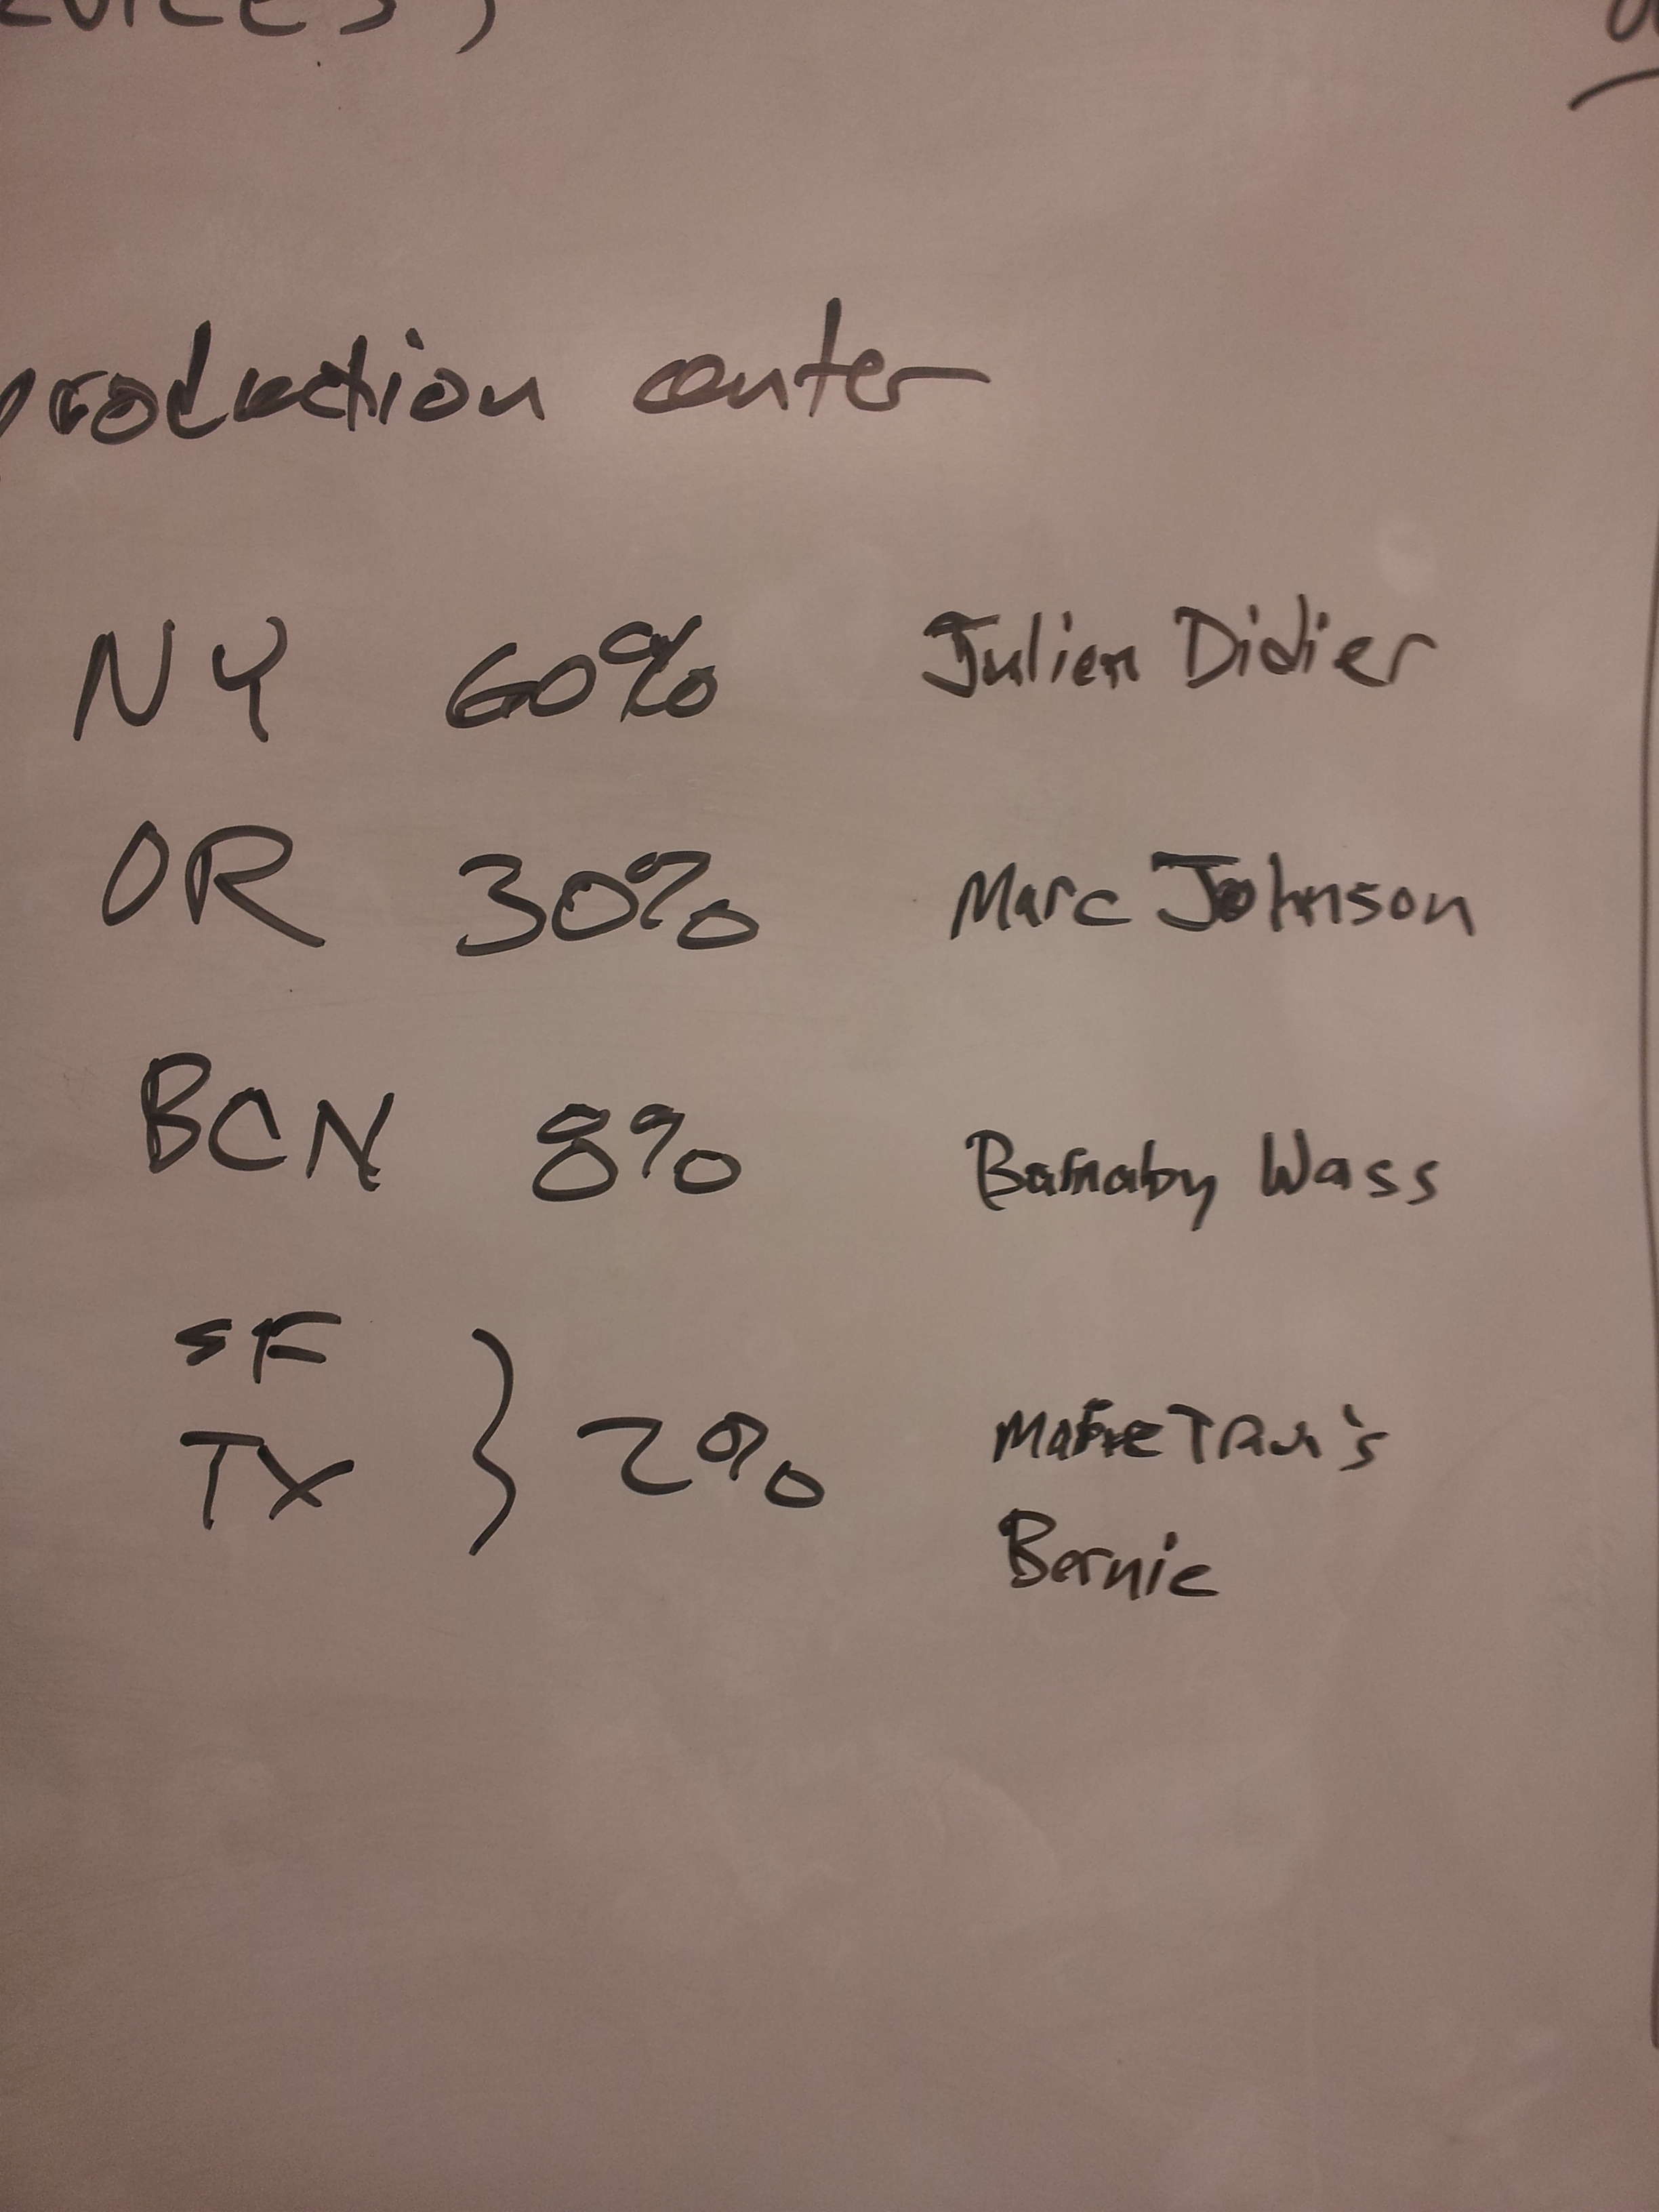 production center
NY 60% Julien Didier
OR 30% Marc Johnson
BCN 8% Barnaby Wass
SF
TX } 2%
Bernie